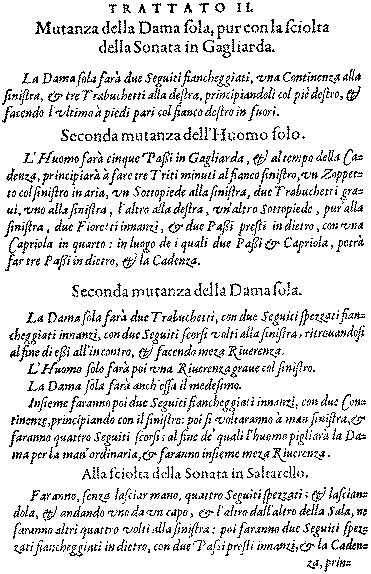 TRATTATO II.
Mutanza della Dama sola, pur con la sciolta
della Sonata in Gagliarda.
La Dama sola farà due Seguiti fiancheggiati, vna Continenza alla
sinistra, & tre Trabuchetti alla destra, principiandoli col piè destro, &
facendo l'vltimo à piedi pari col fianco destro in fuori.
Seconda mutanza dell'Huomo solo.
L'Huomo farà cinque Passi in Gagliarda, & al tempo della Ca-
denza, principiarà à fare tre Triti minuti al fianco sinistro, vn Zoppet-
to col sinistro in aria, vn Sottopiede alla sinistra, due Trabuchetti gra-
ui, vno alla sinistra, l'altro alla destra, vn'altro Sottopiede, pur'alla
sinistra, due Fioretti innanzi, & due Passi presti in dietro, con vna
Capriola in quarto: in luogo de i quali due Passi & Capriola, potrà
far tre Passi in dietro, & la Cadenza.
Seconda mutanza della Dama sola.
La Dama sola farà due Trabuchetti, con due Seguiti spezzati fian-
cheggiati innanzi, con due Seguiti scorsi volti alla sinistra: ritrouandosi
al fine di essi all'incontro, & facendo meza Riuerenza.
L'Huomo solo farà poi vna Riuerenza graue col sinistro.
La Dama sola farà anch'essa il medesimo.
Insieme faranno poi due Seguiti fiancheggiati innanzi, con due Con-
tinenze, principiando con il sinistro: poi si voltaranno à man sinistra, &
faranno quattro Seguiti scorsi: al fine de' quali l'huomo pigliarà la Da-
ma per la man'ordinaria, & faranno insieme meza Riuerenza.
Alla sciolta della Sonata in Saltarello.
Faranno, senza lasciar mano, quattro Seguiti spezzati; & lascian-
dola, & andando vno da vn capo, & l'altro dall'altro della Sala, ne
faranno altri quattro volti alla sinistra: poi faranno due Seguiti spez-
zati fiancheggiati in dietro, con due Passi presti innanzi, & la Caden-
za, prin-